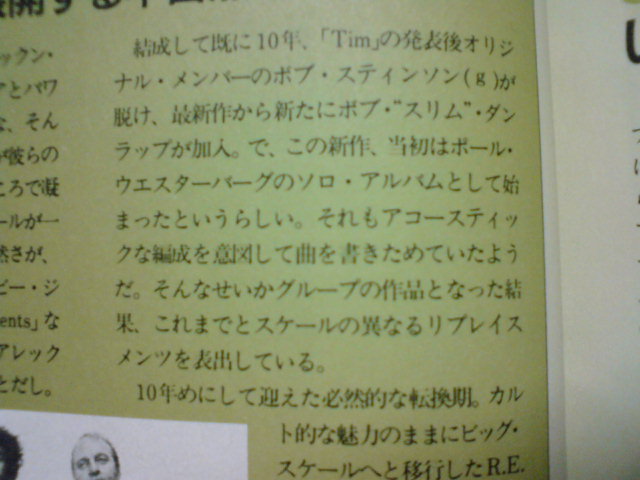 開する
ックン・
アとパワ
な、そん
が彼らの
ころで凝
ールが一
然さが、
ビー・ジ
ents」な
アレック
とだし。
結成して既に10年、「Tim」の発表後オリジ
ナル・メンバーのボブ・スティンソン(g)が
脱け、最新作から新たにボブ・“スリム”・ダン
ラップが加入。で、この新作、当初はポール・
ウエスターバーグのソロ・アルバムとして始
まったというらしい。それもアコースティッ
クな編成を意図して曲を書きためていたよう
だ。そんなせいかグループの作品となった結
果、これまでとスケールの異なるリプレイス
メンツを表出している。
10年めにして迎えた必然的な転換期。カル
ト的な魅力のままにビッグ・
スケールへと移行したR.E.
い